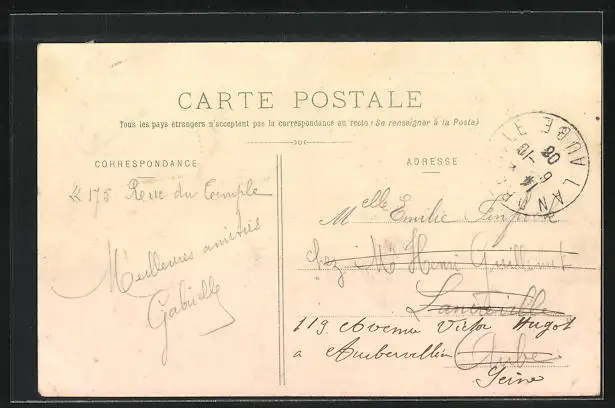 CARTE POSTALE
Tous les pays étrangers n'acceptent pas la correspondance au recto (Se renseigner à la Poste)
CORRESPONDANCE
175 Rue du Temple
Meilleures amitiés
Gabrielle
ADRESSE
Melle Emilie
chez Mr Henri Guillemet
Landreville
119 Avenue Victor Hugot
a Aubervillier
Aube
Seine
LAND
AUBE